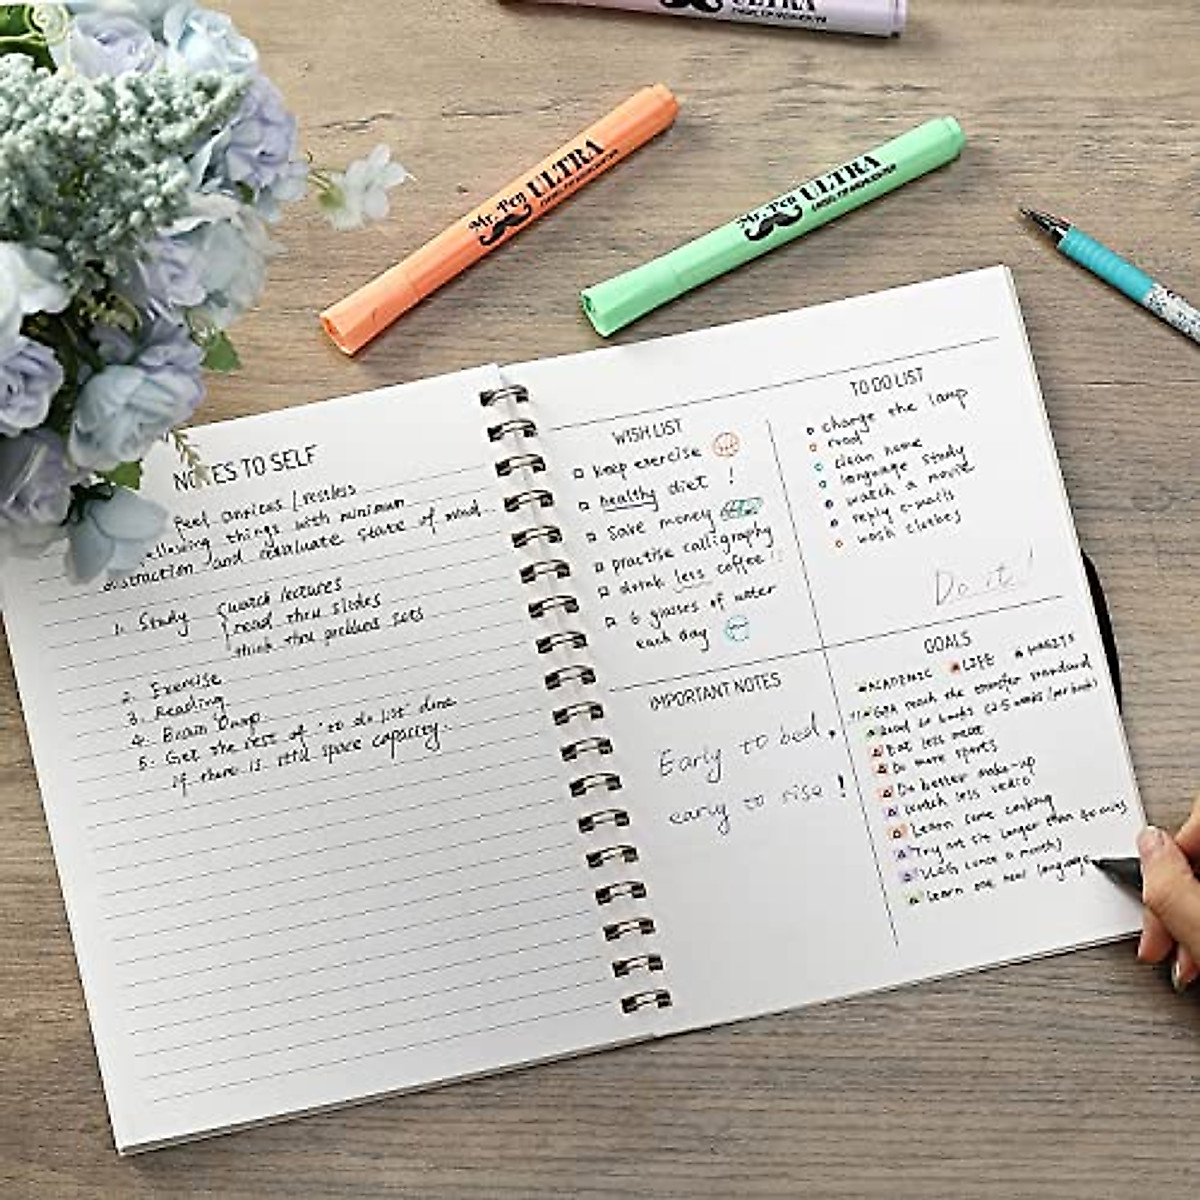 ULTRA
Mr. Pen ULTRA
CHISEL TIP HIGHLIGHTER
Mr. Pen ULTRA
CHISEL TIP HIGHLIGHTER
NOTES TO SELF
Feel anxious / restless
things with minimum
distraction and evaluate state of mind.
1. Study
watch lectures
read thru slides
think thru problem sets
2. Exercise
3. Reading
4. Brain Dump
5. Get the rest of "to do list" done
if there is still space capacity.
WISH LIST
keep exercise
healthy diet !
save money
practise calligraphy
drink less coffee!!
6 glasses of water
each day
TO DO LIST
change the lamp
read
clean home
language study
watch a movie
reply e-mails
wash clothes
Do it!
IMPORTANT NOTES
Early to bed,
early to rise !
GOALS
ACADEMIC LIFE HABITS
GPA reach the transfer standard
Read books
Eat less meat
Do more sports
Do better make-up
Watch less video
Learn some cooking
Try not sit longer than 40 mins
VLOG (once a month)
Learn one new language